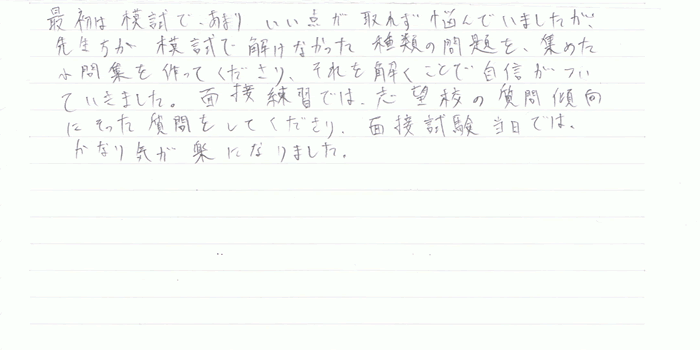 最初は模試で、あまりいい点が取れず悩んでいましたが、
先生方が模試で解けなかった種類の問題を、集めた
小問集を作ってくださり、それを解くことで自信がつい
ていきました。面接練習では、志望校の質問傾向
にそった質問をしてくださり、面接試験当日では、
かなり気が楽になりました。